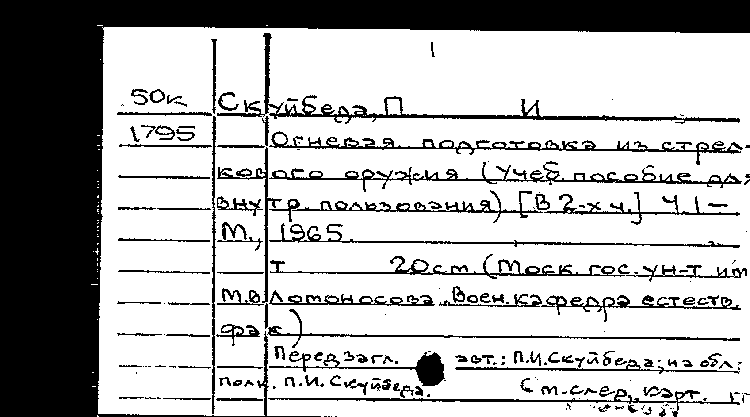 50к Скуйбеда, П И
1795 Огневая подготовка из стрел-
кового оружия. (Учеб. пособие для
внутр. пользования). [В 2-х ч.] Ч. 1 —
М., 1965.
т 20 см. (Моск. гос. ун-т им.
М.В. Ломоносова. Воен. кафедра естеств.
фак.)
Перед загл. авт.: П.И. Скуйбеда; на обл.:
полк. П.И. Скуйбеда.
См. след. карт.